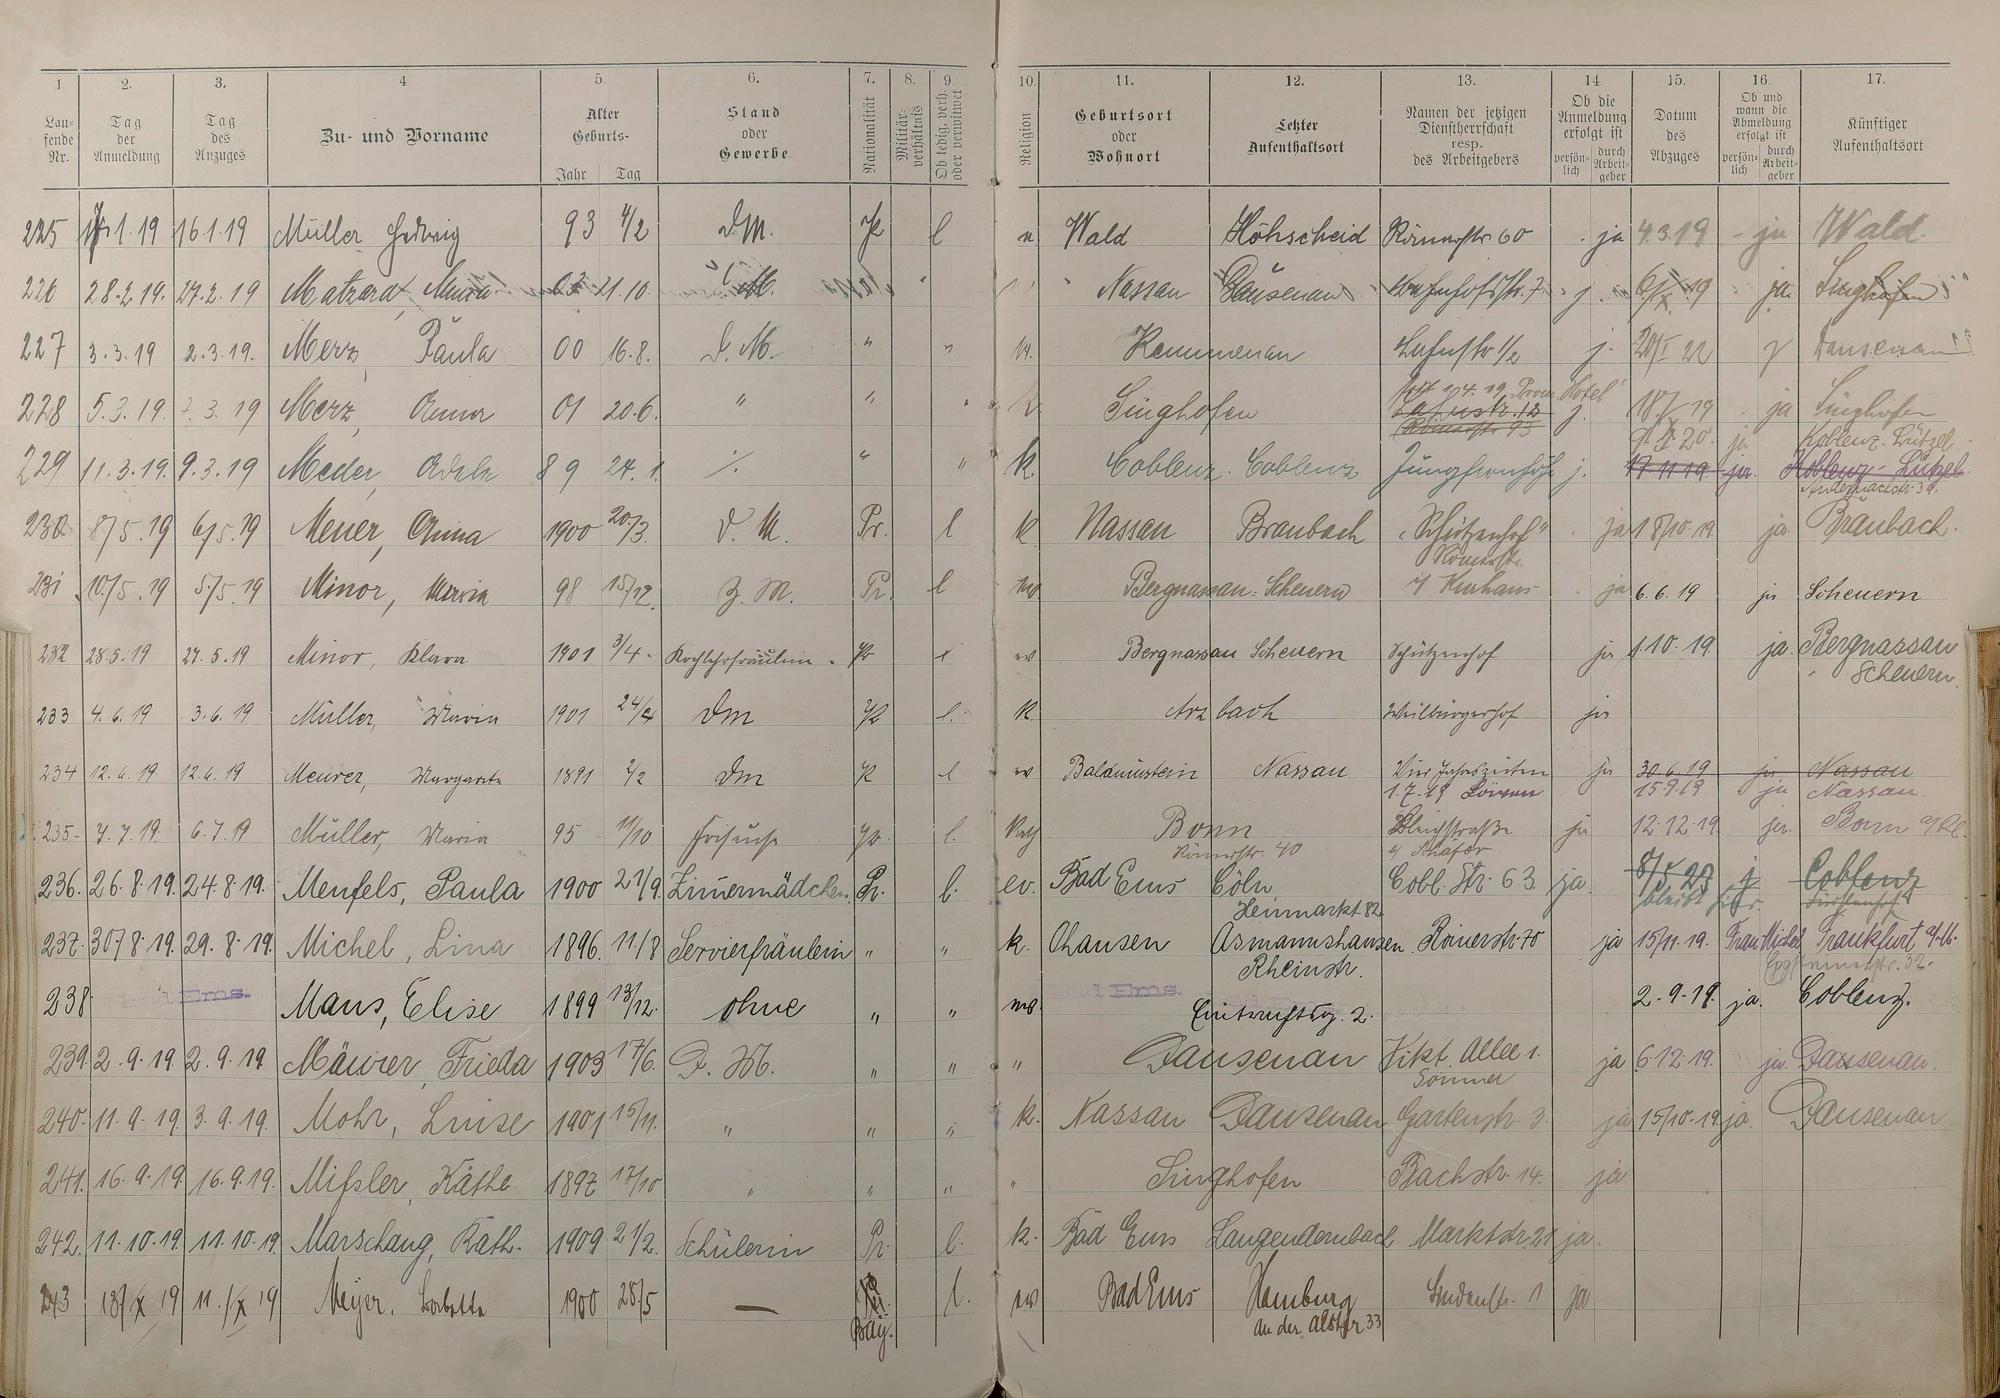 1 2. 3. 4 5. 6. 7. 8. 9. 10. 11. 12. 13. 14. 15. 16. 17.
Lau-
fende
Nr.
Tag
der
Anmeldung
Tag
des
Anzuges
Zu- und Vorname
Alter
Geburts-
Jahr Tag
Stand
oder
Gewerbe
Nationalität
Militär-
verhältnis
Ob ledig, verh.
oder verwitwet
Religion
Geburtsort
oder
Wohnort
Letzter
Aufenthaltsort
Namen der jetzigen
Dienstherrschaft
resp.
des Arbeitgebers
Ob die
Anmeldung
erfolgt ist
persön-
lich
durch
Arbeit-
geber
Datum
des
Abzuges
Ob und
wann die
Abmeldung
erfolgt ist
persön-
lich
durch
Arbeit-
geber
Künftiger
Aufenthaltsort
225 1.19 16.1.19 Müller Hedwig 93 4/2 DM. Pr l Wald Höhscheid Römerstr. 60 ja 4.3.19 ja Wald.
226 28.2.19. 27.2.19 Matzard, 21.10. M. Nassau Dausenau Bahnhofstr. 7 j. 19 ja. Singhofen
227 3.3.19 2.3.19. Merz, Paula 00 16.8. D. M. " " Kemmenau Lahnstr 1/2 j. 22 Dausenau
228 5.3.19. 3.19 Merz, Anna 01 20.6. " " Singhofen
Lahnstr. 12 j. 19 ja Singhofen
Römerstr. 93
20. ja Koblenz-Lützel
229 11.3.19. 9.3.19 Meder, Adele 89 24.1. ./. " " k. Coblenz. Coblenz Jungfernhöhe j. 19.11.19. ja. Koblenz-Lützel.
230 8/5.19 6/5.19 Meuer, Anna 1900 20/3. D. M. Pr. l k. Nassau Braubach "Schützenhof" ja 18/10.19. ja. Braubach.
Römerstr.
231 10/5.19 5/5.19 Minor, Maria 98 15/12. Z. M. Pr. l Bergnassau-Scheuern Kurhaus ja 6.6.19 ja Scheuern
232 28.5.19 27.5.19 Minor, Klara 1901 3/4. Kochlehrfräulein Pr l ev Bergnassau Scheuern Schützenhof ja 1.10.19. ja. Bergnassau
Scheuern.
233 4.6.19 3.6.19 Müller, Maria 1901 24/4 DM Pr l. k. Arzbach Weilburgerhof ja
234 12.6.19 12.6.19 Meurer, Margarete 1891 2/2 DM Pr l ev Balduinstein Nassau Vier Jahreszeiten ja 30.6.19 ja Nassau
1.7.19 Löwen 15.9.19 ja Nassau.
235. 7.7.19. 6.7.19 Müller, Maria 95 11/10 Friseuse Pr. l. Kath Bonn Bleichstraße ja 12.12.19. ja. Bonn a/Rh.
Römerstr. 40 Schäfer
236. 26.8.19. 24.8.19. Menfels, Paula 1900 21/9. Zimermädchen. Pr. l. ev. Bad Ems Cöln Cobl. Str. 63. ja. j Coblenz
Heumarkt 82. bleibt hier.
237. 30/8.19. 29.8.19. Michel, Lina 1896. 11/8 Servierfräulein " " k. Asmannshausen. Römerstr. 70 ja 15/11.19. Frau Michel Frankfurt a/M.
Rheinstr.
238. Bad Ems. Maus, Elise 1899 13/12. ohne " " Bad Ems. 2.9.19. ja. Coblenz.
239. 2.9.19. 2.9.19 Mäurer, Frieda 1903 17/6. D. M. " " " Dausenau Vikt. Allee 1. ja 6.12.19. ja. Dausenau.
240. 11.9.19. 3.9.19. Mohr, Luise 1901 15/11. " " " k. Nassau Dausenau Gartenstr. 3. ja 15/10.19. ja. Dausenau
241. 16.9.19. 16.9.19. Mißler, Käthe 1897 17/10 " " " " Singhofen Bachstr. 14. ja
242. 11.10.19. 11.10.19. Marschang, Käth. 1909 21/2. Schülerin Pr. l. k. Bad Ems Langendernbach Marktstr. 21 ja.
243 18/X 19 11./X 19 Meyer, Babette 1900 28/5 — l. ev Bad Ems Hamburg Lindenstr. 1 ja
Bay. an der Alster 33